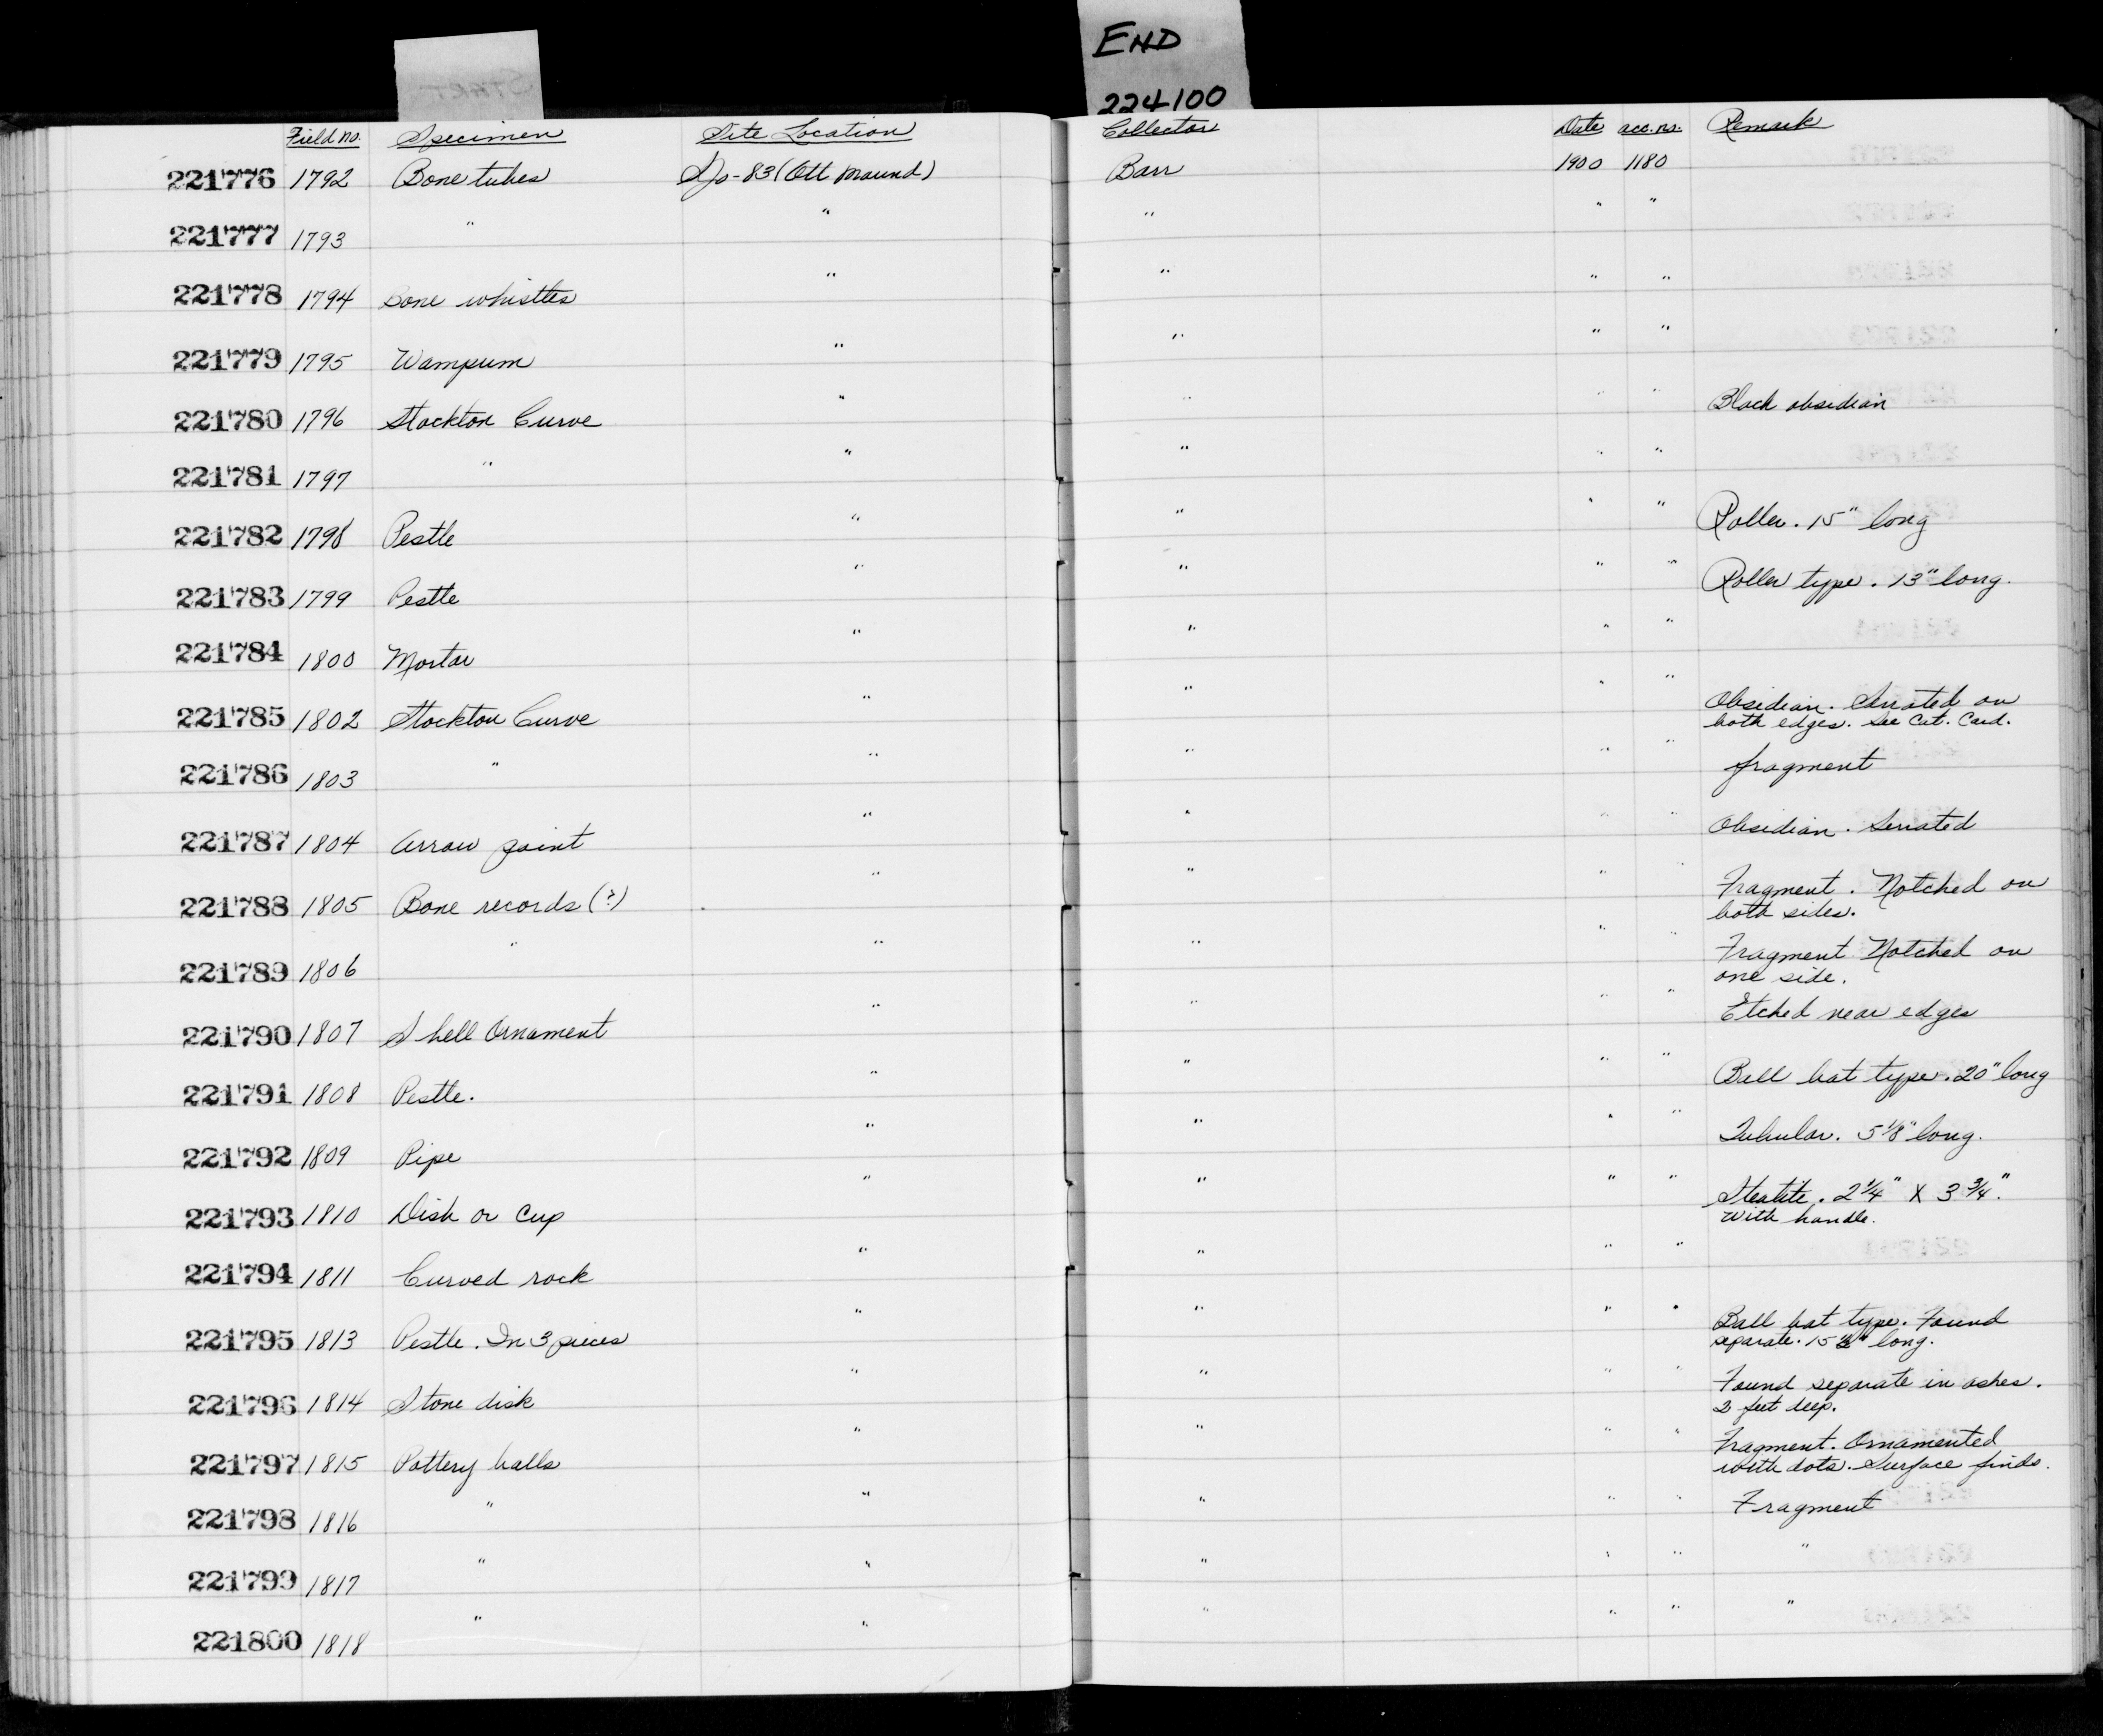 START
END
224100
Field no. Specimen Site Location Collector Date acc. no. Remark
221776 1792 Bone tubes SJo-83 (Ott Mound) Barr 1900 1180
221777 1793 " " " " "
221778 1794 Bone whistles " " " "
221779 1795 Wampum " " " "
221780 1796 Stockton Curve " " " " Black obsidian
221781 1797 " " " " "
221782 1798 Pestle " " " " Roller. 15" long
221783 1799 Pestle " " " " Roller type. 13" long.
221784 1800 Mortar " " " "
221785 1802 Stockton Curve " " " " Obsidian. Serrated on
both edges. See Cat. Card.
221786 1803 " " " " " fragment
221787 1804 Arrow point " " " " Obsidian. Serrated
221788 1805 Bone records (?) " " " " Fragment. Notched on
both sides.
221789 1806 " " " " " Fragment Notched on
one side.
221790 1807 Shell Ornament " " " " Etched near edges
221791 1808 Pestle. " " " " Ball bat type. 20" long
221792 1809 Pipe " " " " Tubular. 5 1/8" long.
221793 1810 Dish or Cup " " " " Steatite. 2 1/4" X 3 3/4".
With handle.
221794 1811 Curved rock " " " "
221795 1813 Pestle. In 3 pieces " " " " Ball bat type. Found
separate. 15 1/2" long.
221796 1814 Stone disk " " " " Found separate in ashes.
2 feet deep.
221797 1815 Pottery balls " " " " Fragment. Ornamented
with dots. Surface finds.
221798 1816 " " " " " Fragment
221799 1817 " " " " " "
221800 1818 " " " " " "